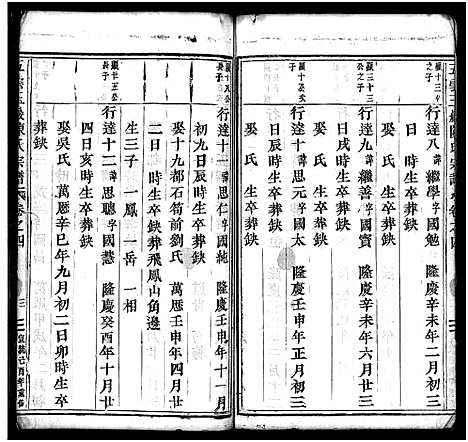 行達八諱繼學字國勉 辛未年二月初三
日 時生卒葬缺
娶 氏 生卒葬缺
行達九諱繼善字國賓 辛未年六月廿三
日 時生卒葬缺
娶 氏 生卒葬缺
行達十諱思元字國太 隆慶壬申年正月初三
日 時生卒葬缺
娶 氏 生卒葬缺
長子
行達十一諱思仁字國純 隆慶壬申年十一月
初九日辰時生卒葬缺
娶十九都石前劉氏 萬厯壬申年四月廿
二日 時生卒缺葬飛鳳山角邊
生三子 一鳳 一岳 一相
長子
行達十二諱思聰字國慧 隆慶癸酉年十月廿
四日亥時生卒葬缺
娶吳氏 萬厯辛巳年九月初二日卯時生卒
葬缺